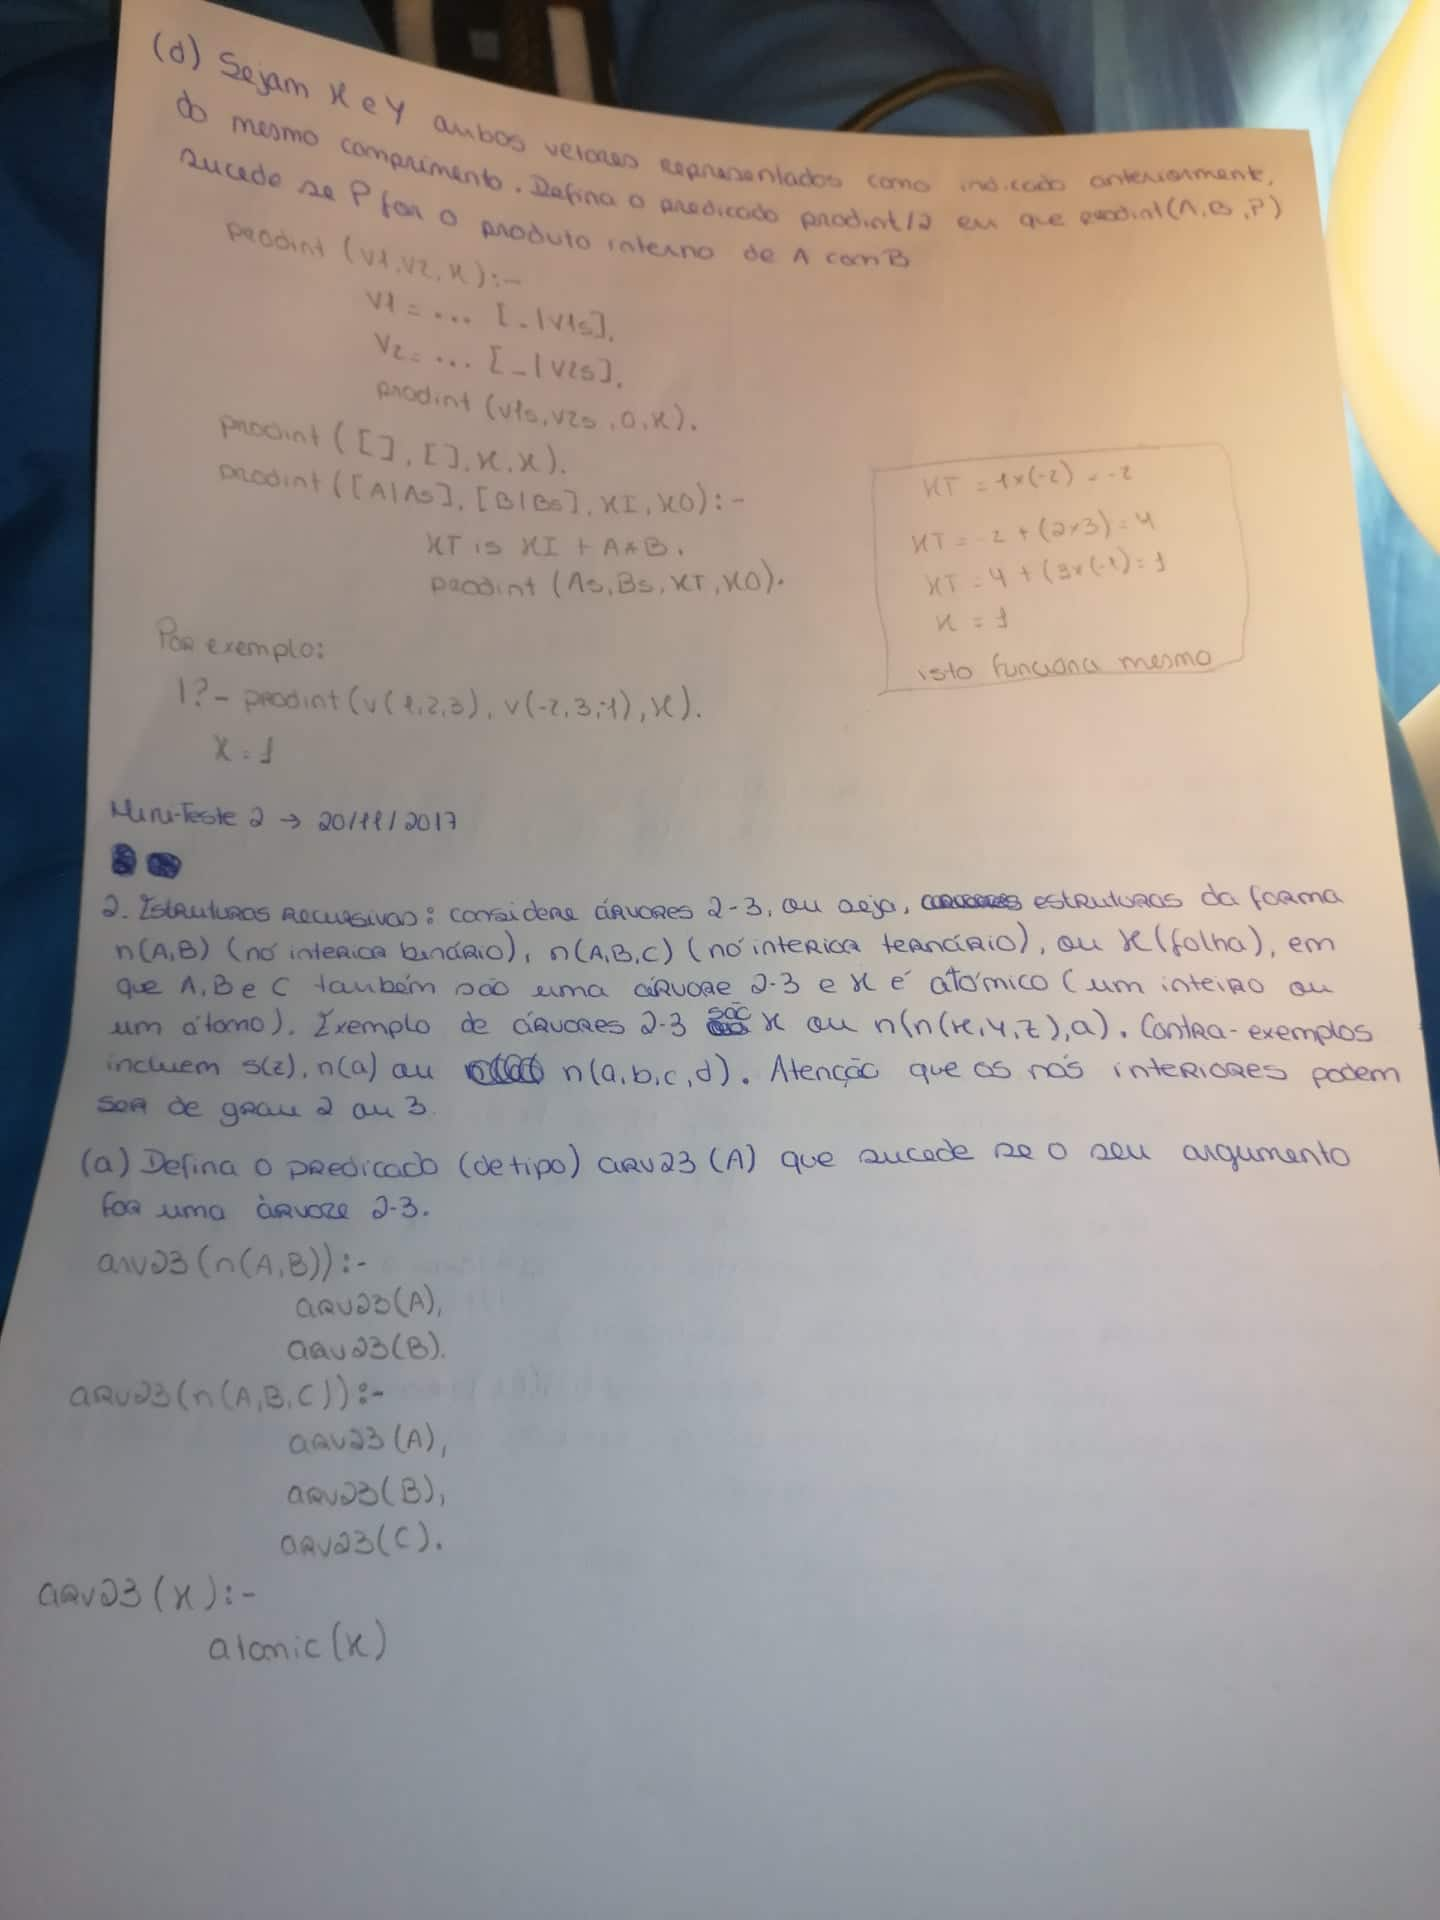 (d) Sejam X e Y ambos vetores representados como indicado anteriormente,
do mesmo comprimento. Defina o predicado prodint/2 em que prodint(A,B,P)
sucede se P for o produto interno de A com B
prodint (V1,V2,X):-
V1 = ... [_|V1s],
V2 = ... [_|V2s],
prodint (V1s,V2s,0,X).
prodint ([],[],X,X).
prodint ([A|As],[B|Bs],XI,XO):-
XT is XI + A*B,
prodint (As,Bs,XT,XO).
XT = 1x(-2) = -2
XT = -2 + (2x3) = 4
XT = 4 + (3x(-1) = 1
X = 1
isto funciona mesmo
Por exemplo:
|?- prodint(v(1,2,3), v(-2,3,-1),X).
X = 1
Mini-Teste 2 → 20/11/2017
2. Estruturas recursivas: considere árvores 2-3, ou seja, estruturas da forma
n(A,B) (nó interior binário), n(A,B,C) (nó interior ternário), ou X (folha), em
que A, B e C também são uma árvore 2-3 e X é atómico (um inteiro ou
um átomo). Exemplo de árvores 2-3 são x ou n(n(x,y,z),a). Contra-exemplos
incluem s(z), n(a) ou n(a,b,c,d). Atenção que os nós interiores podem
ser de grau 2 ou 3.
(a) Defina o predicado (de tipo) arv23(A) que sucede se o seu argumento
for uma árvore 2-3.
arv23(n(A,B)):-
arv23(A),
arv23(B).
arv23(n(A,B,C)):-
arv23(A),
arv23(B),
arv23(C).
arv23(X):-
atomic(X)